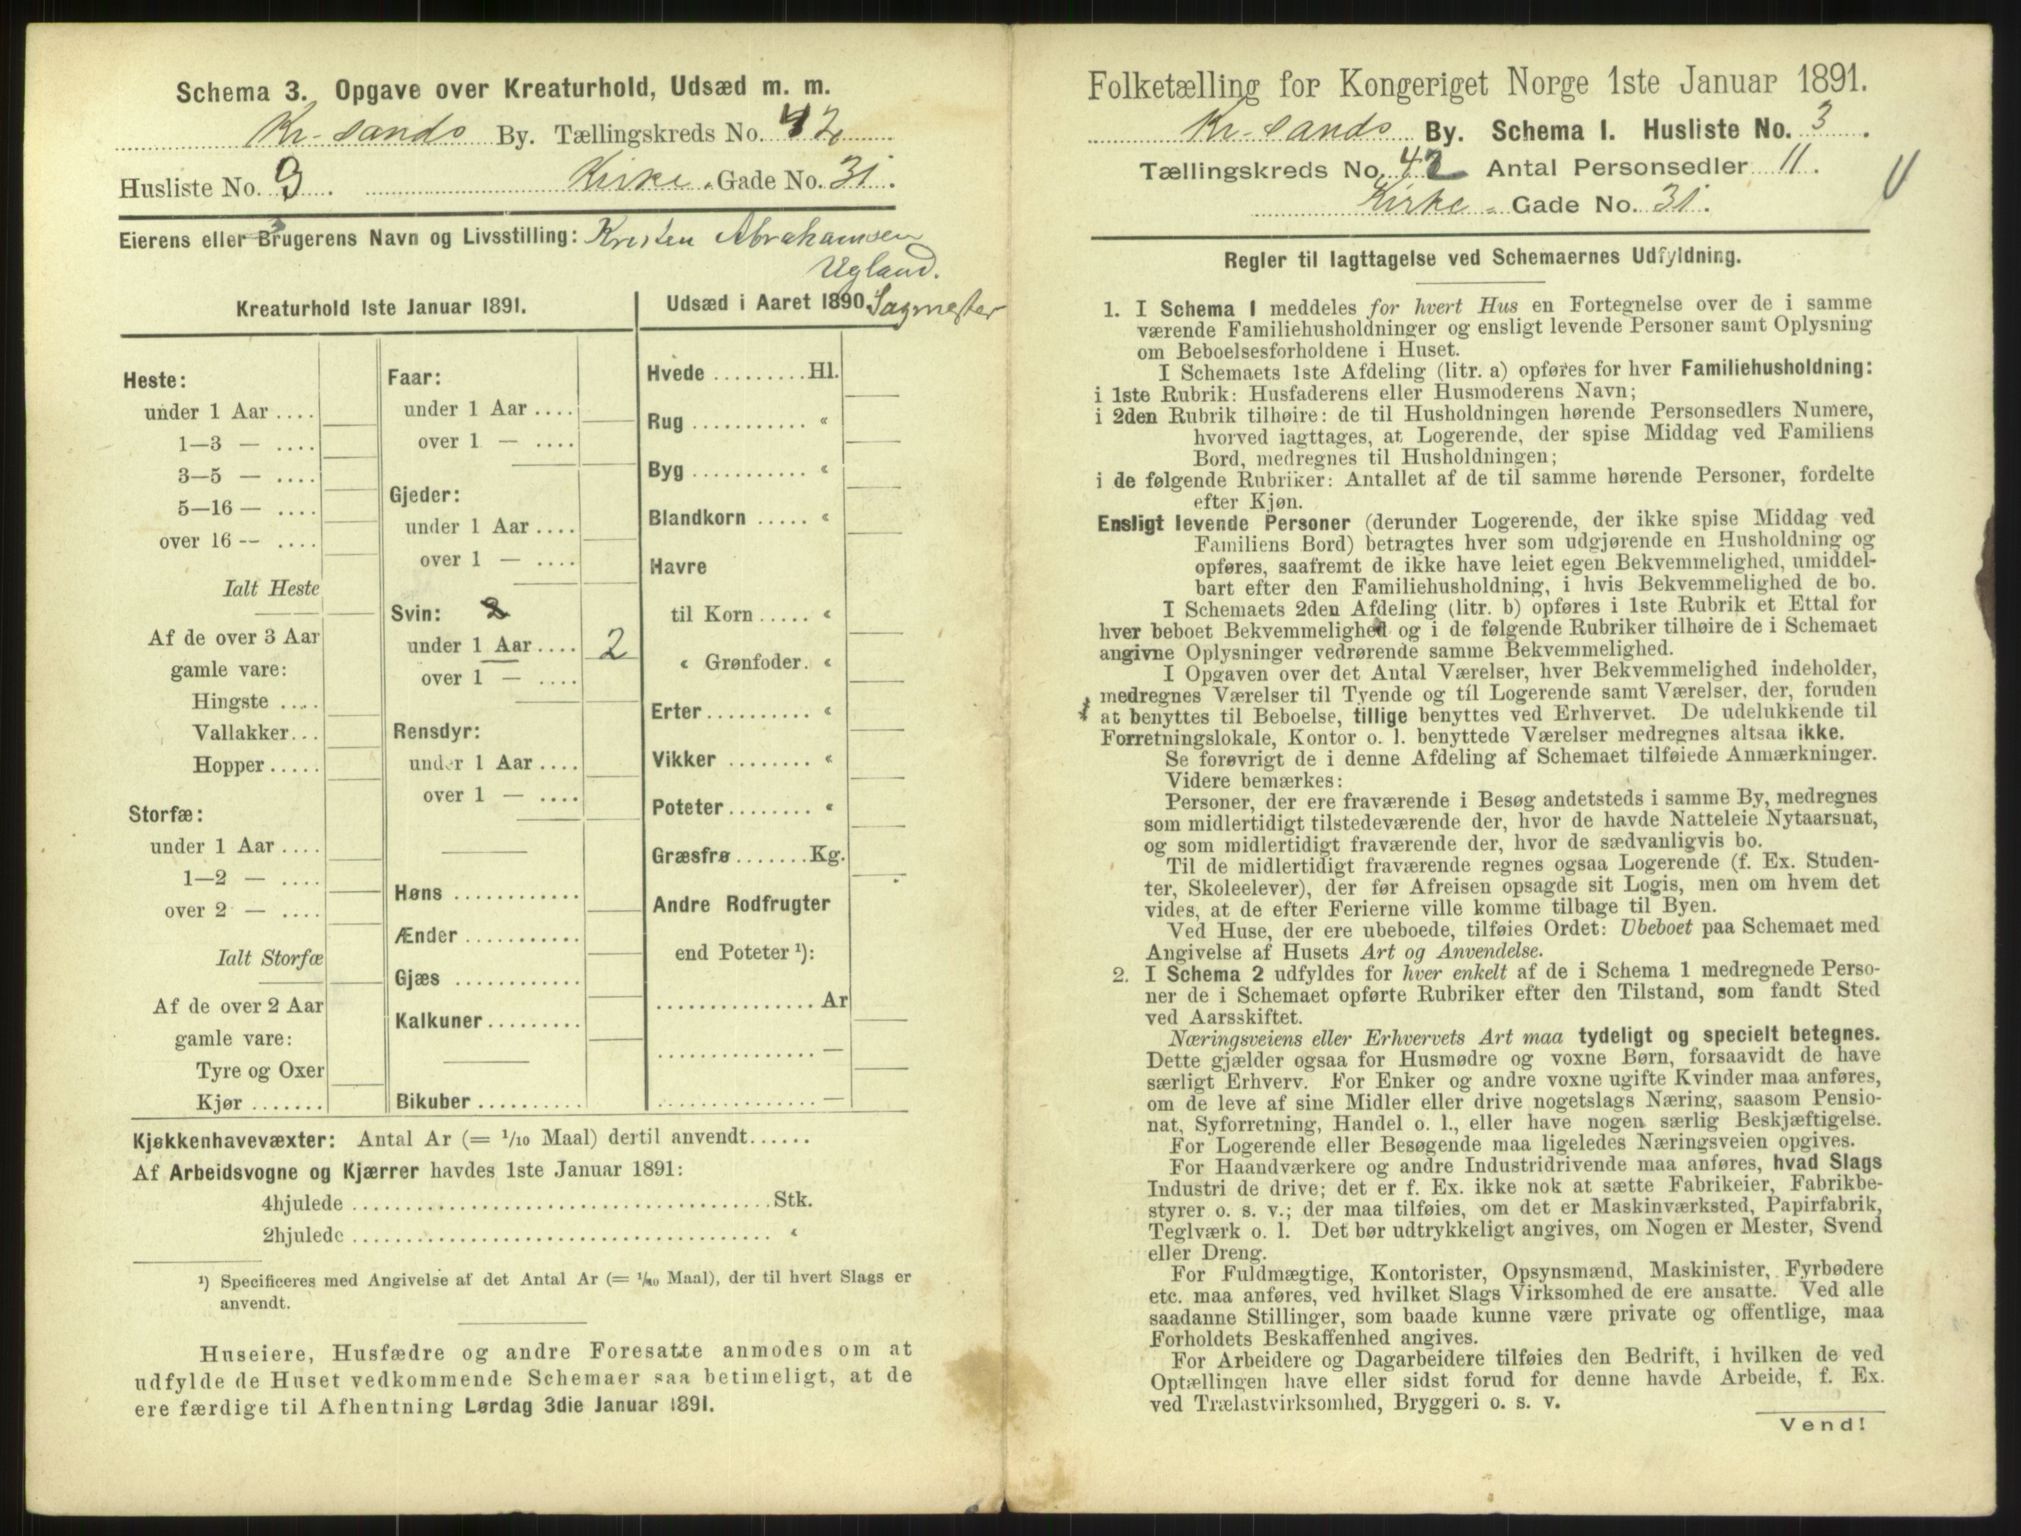 Schema 3. Opgave over Kreaturhold, Udsæd m. m.
Kr-sands By. Tællingskreds No. 42
Husliste No. 3. Kirke-Gade No. 31.
Eierens eller Brugerens Navn og Livsstilling: Kristen Abrahamsen
Ugland.
Sagmester
Kreaturhold 1ste Januar 1891.
Heste:
under 1 Aar ....
1—3 — ....
3—5 — ....
5—16 — ....
over 16 -- ....
Ialt Heste
Af de over 3 Aar
gamle vare:
Hingste ....
Vallakker...
Hopper.....
Storfæ:
under 1 Aar ....
1—2 — ....
over 2 — ....
Ialt Storfæ
Af de over 2 Aar
gamle vare:
Tyre og Oxer
Kjør .......
Faar:
under 1 Aar ....
over 1 — ....
Gjeder:
under 1 Aar ....
over 1 — ....
Svin: 2
under 1 Aar .... 2
over 1 — ....
Rensdyr:
under 1 Aar ....
over 1 — ....
Høns ............
Ænder ...........
Gjæs ............
Kalkuner.........
Bikuber..........
Udsæd i Aaret 1890.
Hvede .........Hl.
Rug ........... «
Byg ........... «
Blandkorn ..... «
Havre
til Korn ..... «
« Grønfoder. «
Erter.......... «
Vikker ........ «
Poteter........ «
Græsfrø .......Kg.
Andre Rodfrugter
end Poteter ¹):
............... Ar
............... —
............... —
Kjøkkenhavevæxter: Antal Ar (= 1/10 Maal) dertil anvendt......
Af Arbeidsvogne og Kjærrer havdes 1ste Januar 1891:
4hjulede ......................................Stk.
2hjulede ...................................... «
¹) Specificeres med Angivelse af det Antal Ar (= 1/10 Maal), der til hvert Slags er
anvendt.
Huseiere, Husfædre og andre Foresatte anmodes om at
udfylde de Huset vedkommende Schemaer saa betimeligt, at de
ere færdige til Afhentning Lørdag 3die Januar 1891.
Folketælling for Kongeriget Norge 1ste Januar 1891.
Kr-sands By. Schema I. Husliste No. 3.
Tællingskreds No. 42 Antal Personsedler 11.
Kirke-Gade No. 31.
Regler til Iagttagelse ved Schemaernes Udfyldning.
1. I Schema 1 meddeles for hvert Hus en Fortegnelse over de i samme
værende Familiehusholdninger og ensligt levende Personer samt Oplysning
om Beboelsesforholdene i Huset.
I Schemaets 1ste Afdeling (litr. a) opføres for hver Familiehusholdning:
i 1ste Rubrik: Husfaderens eller Husmoderens Navn;
i 2den Rubrik tilhøire: de til Husholdningen hørende Personsedlers Numere,
hvorved iagttages, at Logerende, der spise Middag ved Familiens
Bord, medregnes til Husholdningen;
i de følgende Rubriker: Antallet af de til samme hørende Personer, fordelte
efter Kjøn.
Ensligt levende Personer (derunder Logerende, der ikke spise Middag ved
Familiens Bord) betragtes hver som udgjørende en Husholdning og
opføres, saafremt de ikke have leiet egen Bekvemmelighed, umiddel-
bart efter den Familiehusholdning, i hvis Bekvemmelighed de bo.
I Schemaets 2den Afdeling (litr. b) opføres i 1ste Rubrik et Ettal for
hver beboet Bekvemmelighed og i de følgende Rubriker tilhøire de i Schemaet
angivne Oplysninger vedrørende samme Bekvemmelighed.
I Opgaven over det Antal Værelser, hver Bekvemmelighed indeholder,
medregnes Værelser til Tyende og til Logerende samt Værelser, der, foruden
at benyttes til Beboelse, tillige benyttes ved Erhvervet. De udelukkende til
Forretningslokale, Kontor o. l. benyttede Værelser medregnes altsaa ikke.
Se forøvrigt de i denne Afdeling af Schemaet tilføiede Anmærkninger.
Videre bemærkes:
Personer, der ere fraværende i Besøg andetsteds i samme By, medregnes
som midlertidigt tilstedeværende der, hvor de havde Natteleie Nytaarsnat,
og som midlertidigt fraværende der, hvor de sædvanligvis bo.
Til de midlertidigt fraværende regnes ogsaa Logerende (f. Ex. Studen-
ter, Skoleelever), der før Afreisen opsagde sit Logis, men om hvem det
vides, at de efter Ferierne ville komme tilbage til Byen.
Ved Huse, der ere ubeboede, tilføies Ordet: Ubeboet paa Schemaet med
Angivelse af Husets Art og Anvendelse.
2. I Schema 2 udfyldes for hver enkelt af de i Schema 1 medregnede Perso-
ner de i Schemaet opførte Rubriker efter den Tilstand, som fandt Sted
ved Aarsskiftet.
Næringsveiens eller Erhvervets Art maa tydeligt og specielt betegnes.
Dette gjælder ogsaa for Husmødre og voxne Børn, forsaavidt de have
særligt Erhverv. For Enker og andre voxne ugifte Kvinder maa anføres,
om de leve af sine Midler eller drive nogetslags Næring, saasom Pensio-
nat, Syforretning, Handel o. l., eller have nogen særlig Beskjæftigelse.
For Logerende eller Besøgende maa ligeledes Næringsveien opgives.
For Haandværkere og andre Industridrivende maa anføres, hvad Slags
Industri de drive; det er f. Ex. ikke nok at sætte Fabrikeier, Fabrikbe-
styrer o. s. v.; der maa tilføies, om det er Maskinværksted, Papirfabrik,
Teglværk o. l. Det bør udtrykkeligt angives, om Nogen er Mester, Svend
eller Dreng.
For Fuldmægtige, Kontorister, Opsynsmænd, Maskinister, Fyrbødere
etc. maa anføres, ved hvilket Slags Virksomhed de ere ansatte. Ved alle
saadanne Stillinger, som baade kunne være private og offentlige, maa
Forholdets Beskaffenhed angives.
For Arbeidere og Dagarbeidere tilføies den Bedrift, i hvilken de ved
Optællingen have eller sidst forud for denne havde Arbeide, f. Ex.
ved Trælastvirksomhed, Bryggeri o. s. v.
Vend!